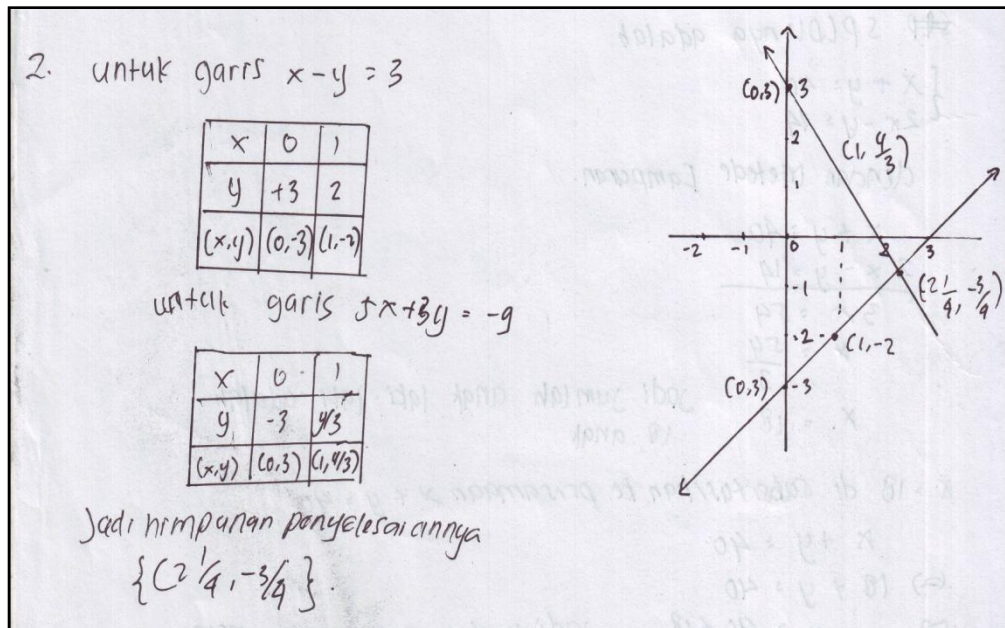 2. untuk garis x - y = 3
x 0 1
y +3 2
(x,y) (0,-3) (1,-2)
untuk garis 5x+3y = -9
x 0 1
y -3 4/3
(x,y) (0,3) (1,4/3)
Jadi himpunan penyelesaiannya
{(2 1/4, -3/4}.
(0,3) 3
2
(1, 4/3)
1
-2 -1 0 2 3
-1
(2 1/4, -3/4)
-2 (1,-2
(0,3) -3